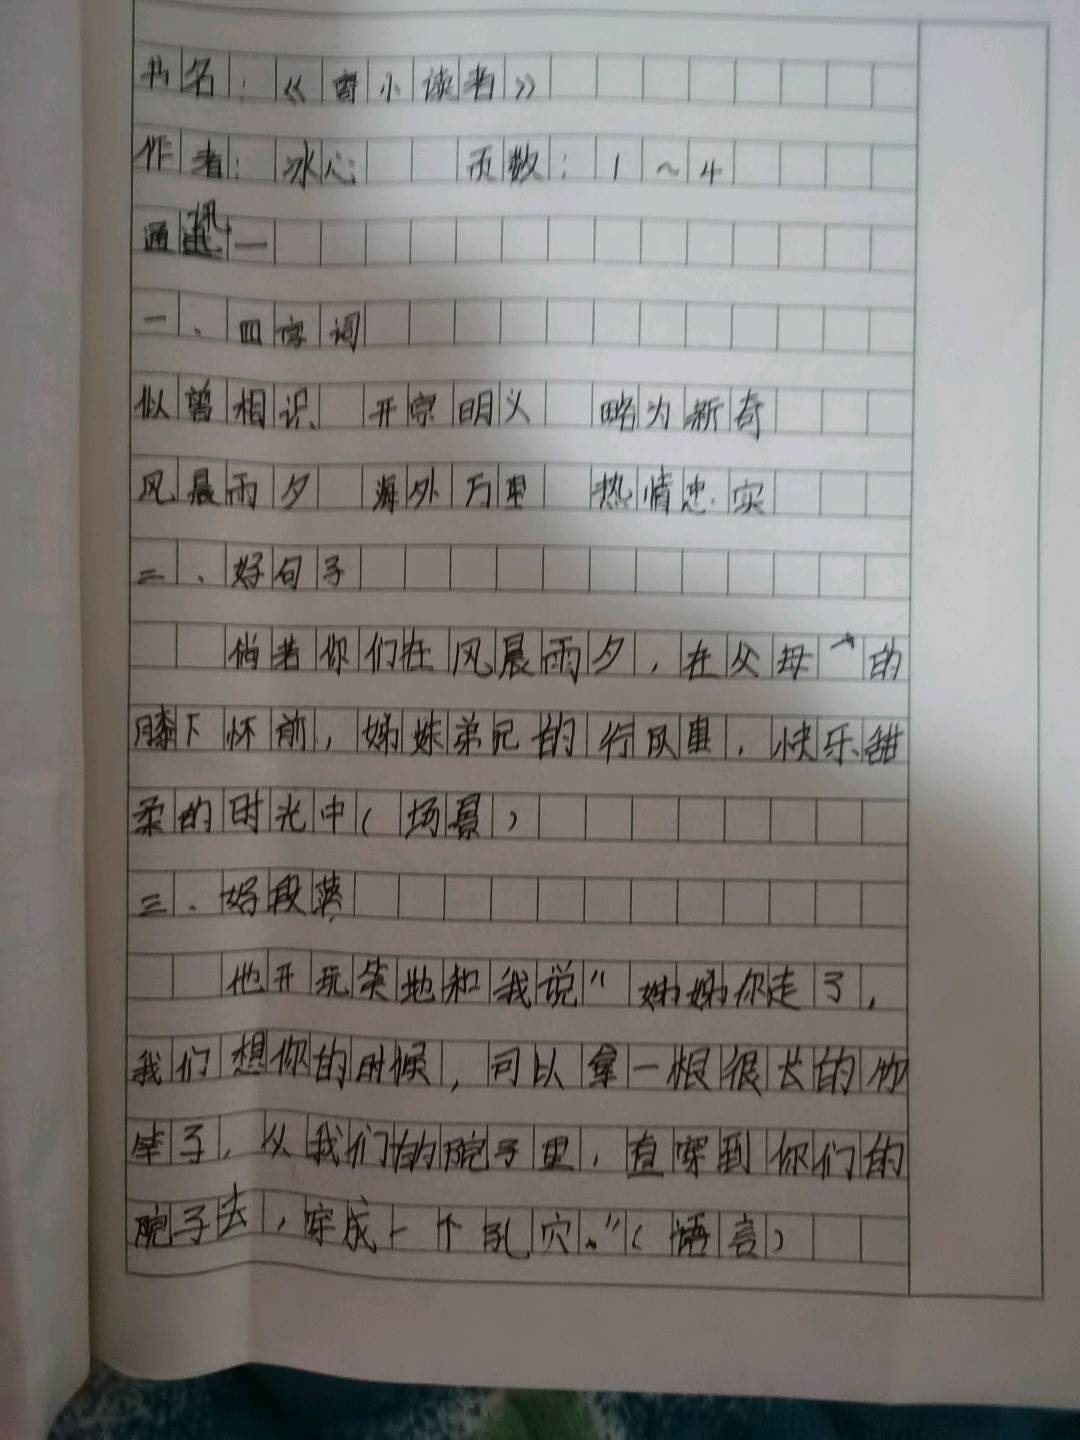 书名：《寄小读者》
作者：冰心 页数：1～4
通讯一
一、四字词
似曾相识 开宗明义 略为新奇
风晨雨夕 海外万里 热情忠实
二、好句子
倘若你们在风晨雨夕，在父母的
膝下怀前，姊妹弟兄的行队里，快乐甜
柔的时光中（场景）
三、好段落
他开玩笑地和我说“姊姊你走了，
我们想你的时候，可以拿一根很长的竹
竿子，从我们的院子里，直穿到你们的
院子去，穿成一个孔穴。”（语言）